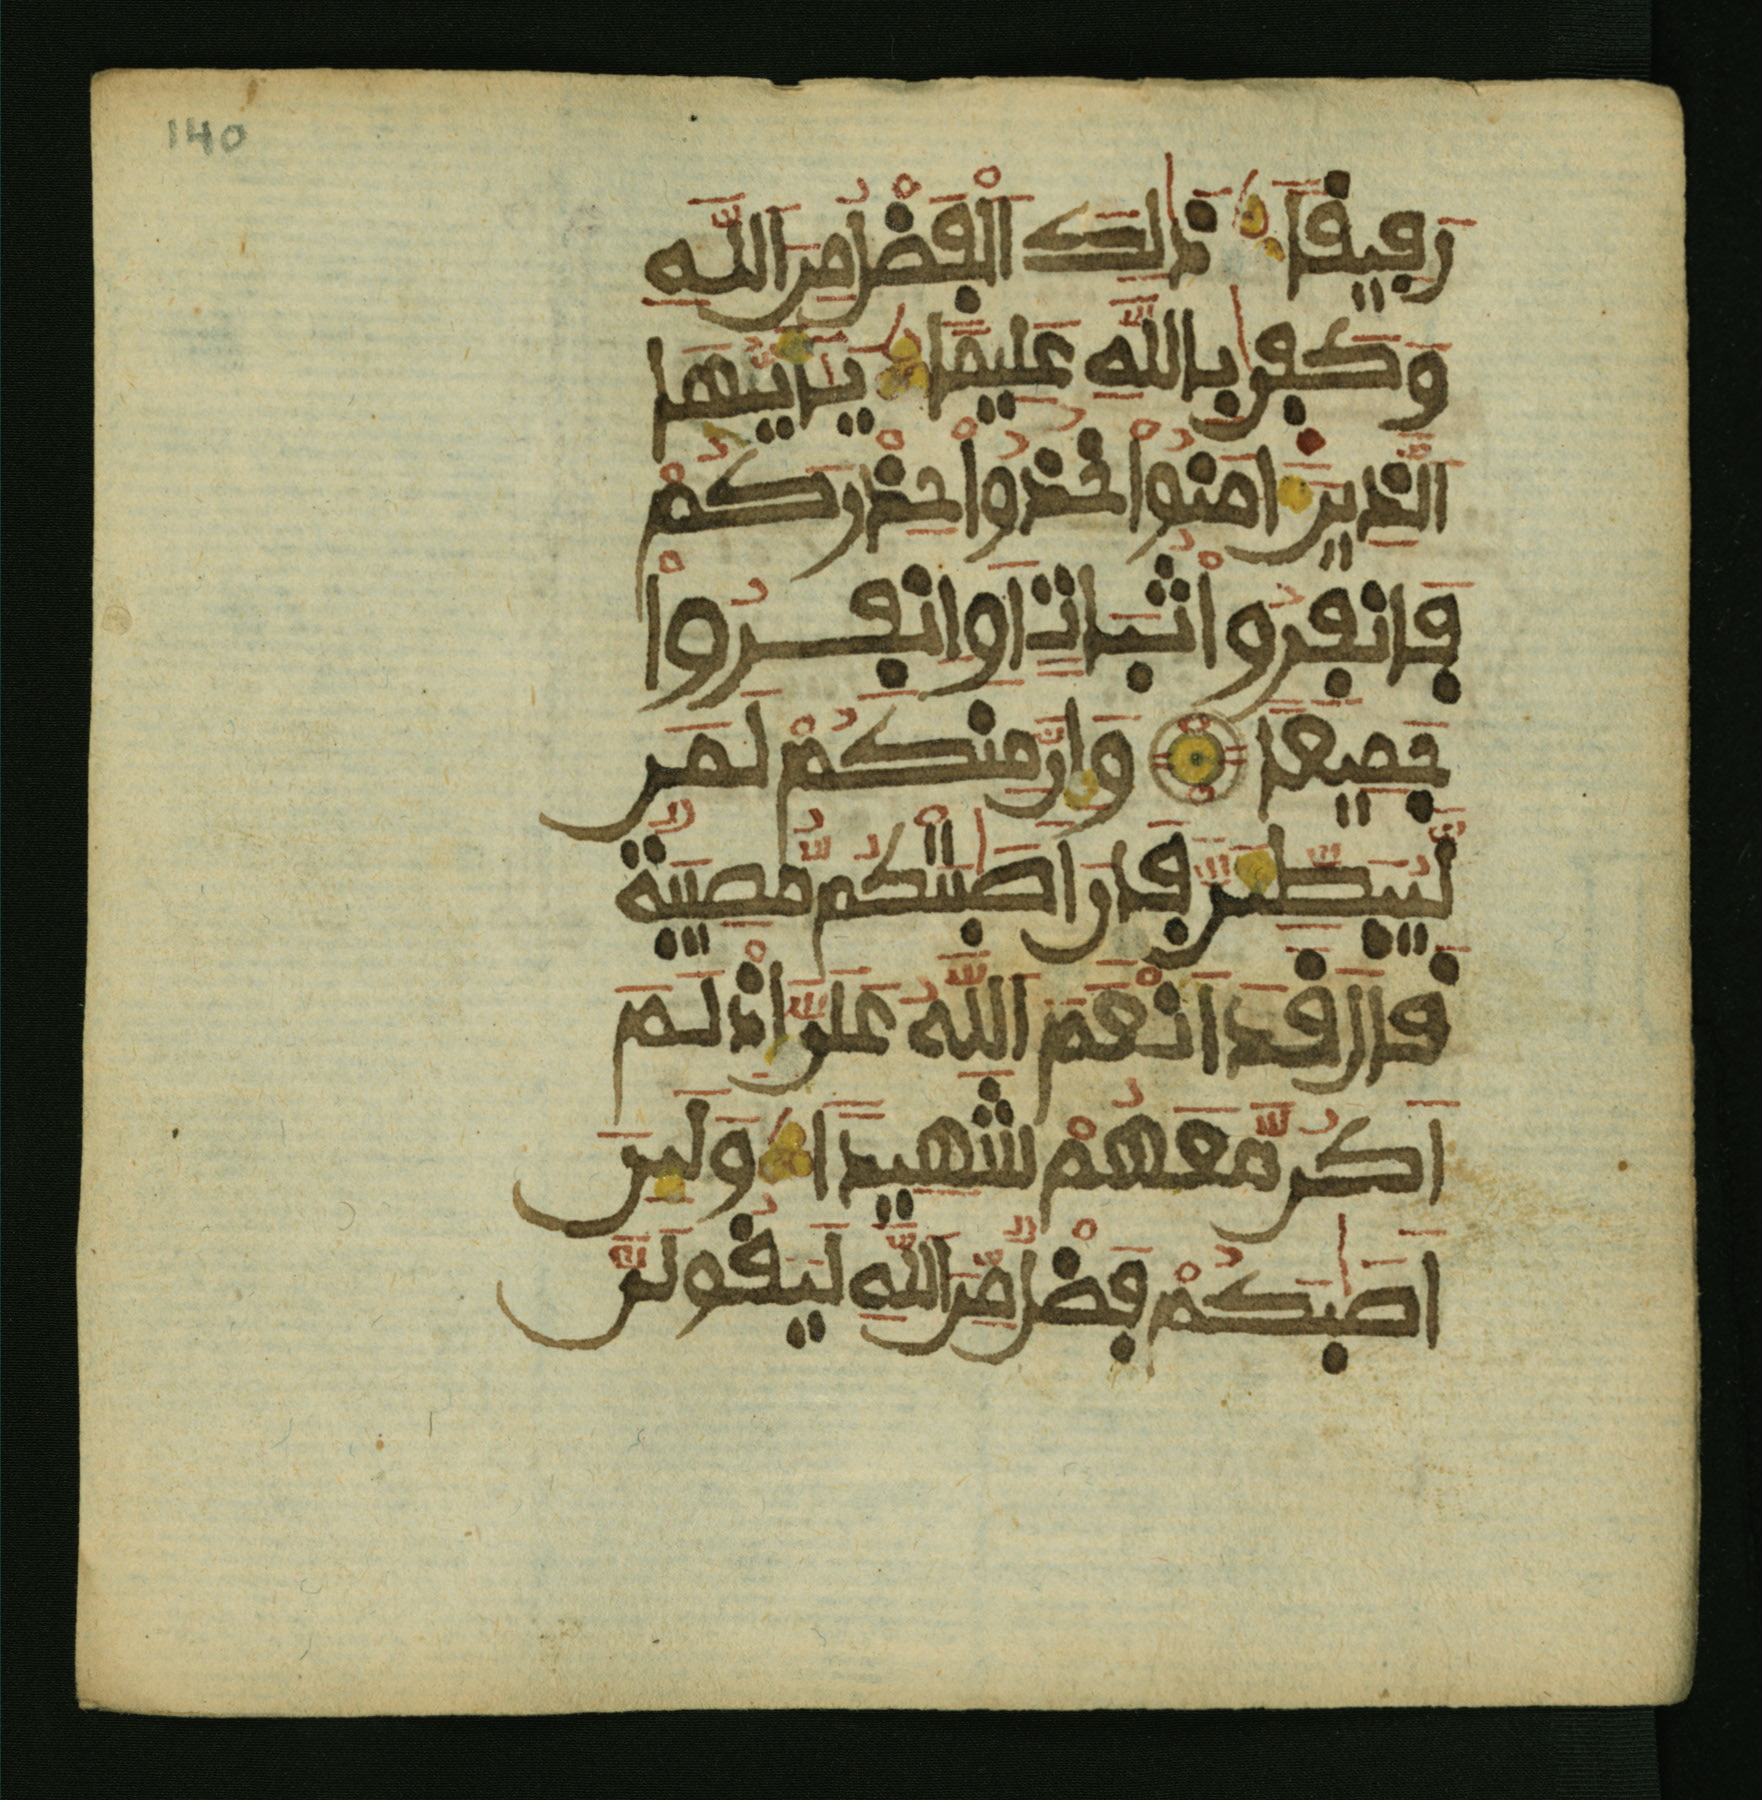 140
رَفِيقًا ذَٰلِكَ الْفَضْلُ مِنَ اللَّهِ
وَكَفَىٰ بِاللَّهِ عَلِيمًا يَٰأَيُّهَا
الَّذِينَ ءَامَنُواْ خُذُواْ حِذْرَكُمْ
فَانفِرُواْ ثُبَاتٍ أَوِ انفِرُواْ
جَمِيعًا وَإِنَّ مِنكُمْ لَمَن
لَّيُبَطِّئَنَّ فَإِنْ أَصَٰبَتْكُم مُّصِيبَةٌ
قَالَ قَدْ أَنْعَمَ اللَّهُ عَلَيَّ إِذْ لَمْ
أَكُن مَّعَهُمْ شَهِيدًا وَلَئِنْ
أَصَٰبَكُمْ فَضْلٌ مِّنَ اللَّهِ لَيَقُولَنَّ